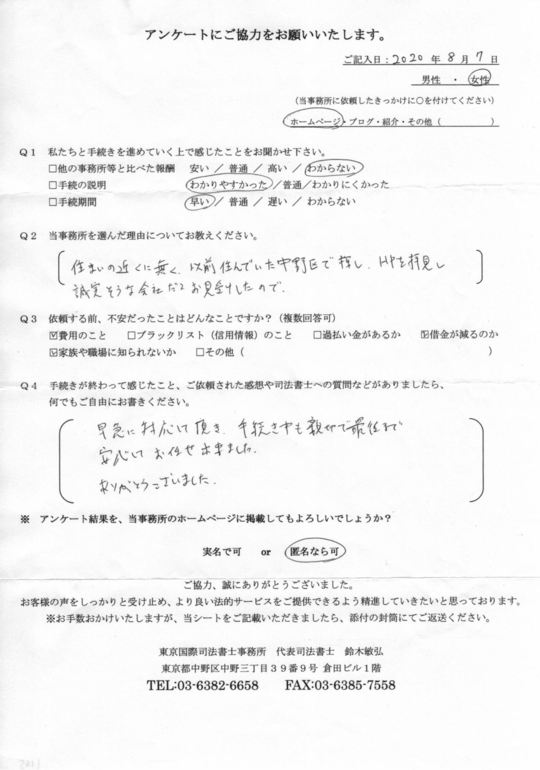 アンケートにご協力をお願いいたします。
ご記入日:2020年8月7日
男性 ・ 女性
(当事務所に依頼したきっかけに○を付けてください)
ホームページ・ブログ・紹介・その他( )
Q1 私たちと手続きを進めていく上で感じたことをお聞かせ下さい。
□他の事務所等と比べた報酬 安い / 普通 / 高い / わからない
□手続の説明 わかりやすかった/普通/わかりにくかった
□手続期間 早い/ 普通 / 遅い / わからない
Q2 当事務所を選んだ理由についてお教えください。
住まいの近くに無く、以前住んでいた中野区で探し、HPを拝見し
誠実そうな会社だとお見受けしたので、
Q3 依頼する前、不安だったことはどんなことですか?(複数回答可)
☑費用のこと □ブラックリスト(信用情報)のこと □過払い金があるか ☑借金が減るのか
☑家族や職場に知られないか □その他( )
Q4 手続きが終わって感じたこと、ご依頼された感想や司法書士への質問などがありましたら、
何でもご自由にお書きください。
早急に対応して頂き、手続き中も親切で最後まで
安心してお任せ出来ました。
ありがとうございました。
※ アンケート結果を、当事務所のホームページに掲載してもよろしいでしょうか?
実名で可 or 匿名なら可
ご協力、誠にありがとうございました。
お客様の声をしっかりと受け止め、より良い法的サービスをご提供できるよう精進していきたいと思っております。
※お手数おかけいたしますが、当シートをご記載いただきましたら、添付の封筒にてご返送ください。
東京国際司法書士事務所 代表司法書士 鈴木敏弘
東京都中野区中野三丁目39番9号 倉田ビル1階
TEL:03-6382-6658 FAX:03-6385-7558